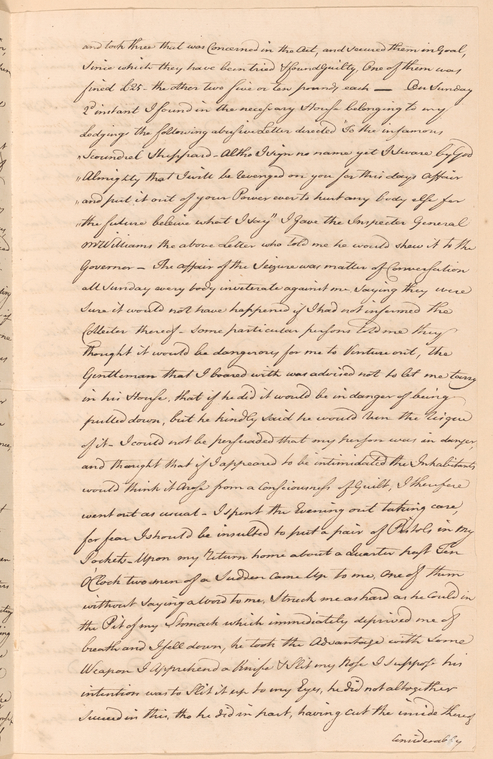 and took three that was Concerned in the Act, and secured them in Goal,
Since which they have been tried & found Guilty, One of them was
fined £25 - the other two five or ten pounds each — On Sunday
2d instant I found in the necessary House belonging to my
Lodgings the following abusive Letter directed To the infamous
"Scoundrel Sheppard - Altho I sign no name yet I sware by God
"Almighty that I will be revenged on you for this days Affair
"and put it out of your Power ever to hurt any body else for
"the future beleive what I say" I Gave the Inspector General
Mr Williams the above Letter who told me he would show it to the
Governor — The affair of the Seizure was matter of Conversation
all Sunday every body inveterate against me, saying they were
sure it would not have happened if I had not informed the
Colletor thereof - Some particular persons told me they
thought it would be dangerous for me to Venture out, the
Gentleman that I boared with was advised not to let me tarry
in his House, that if he did it would be in danger of being
pulled down, but he kindly said he would run the Risque
of it - I could not be persuaded that my person was in danger,
and thought that if I appeared to be intimidated the Inhabitants
would think it Arose from a Consciousness of Guilt, I therefore
went out as usual - I spent the Evening out taking care
for fear I should be insulted to put a pair of Pistols in my
Pockets - Upon my return home about a Quarter past Ten
O'Clock two men of a Sudden came Up to me, one of them
without Saying a word to me, Struck me as hard as he Could in
the Pit of my Stomack which immediately deprived me of
breath and I fell down, he took the Advantage with Some
Weapon I Apprehend a Knife & Slit my Nose I suppose his
intention was to Slit it up to my Eyes, he did not altogether
Succeed in this, tho he did in part, having Cut the inside thereof
Considerably